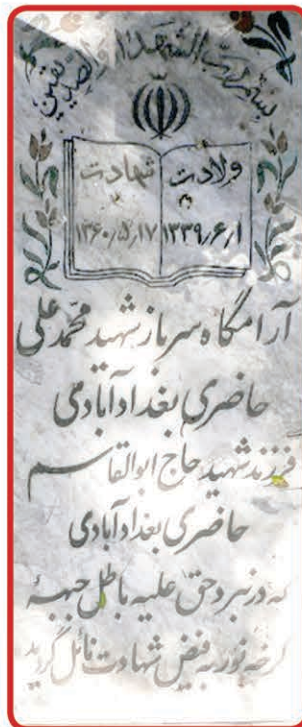 بسم رب الشهداء والصدیقین
ولادت
۱۳۳۹/۶/۱
شهادت
۱۳۶۰/۵/۱۷
آرامگاه سرباز شهید محمد علی
حاضری بغدادآبادی
فرزند شهید حاج ابوالقاسم
حاضری بغدادآبادی
که در نبرد حق علیه باطل جبهۀ
کرخه نور به فیض شهادت نائل گردید